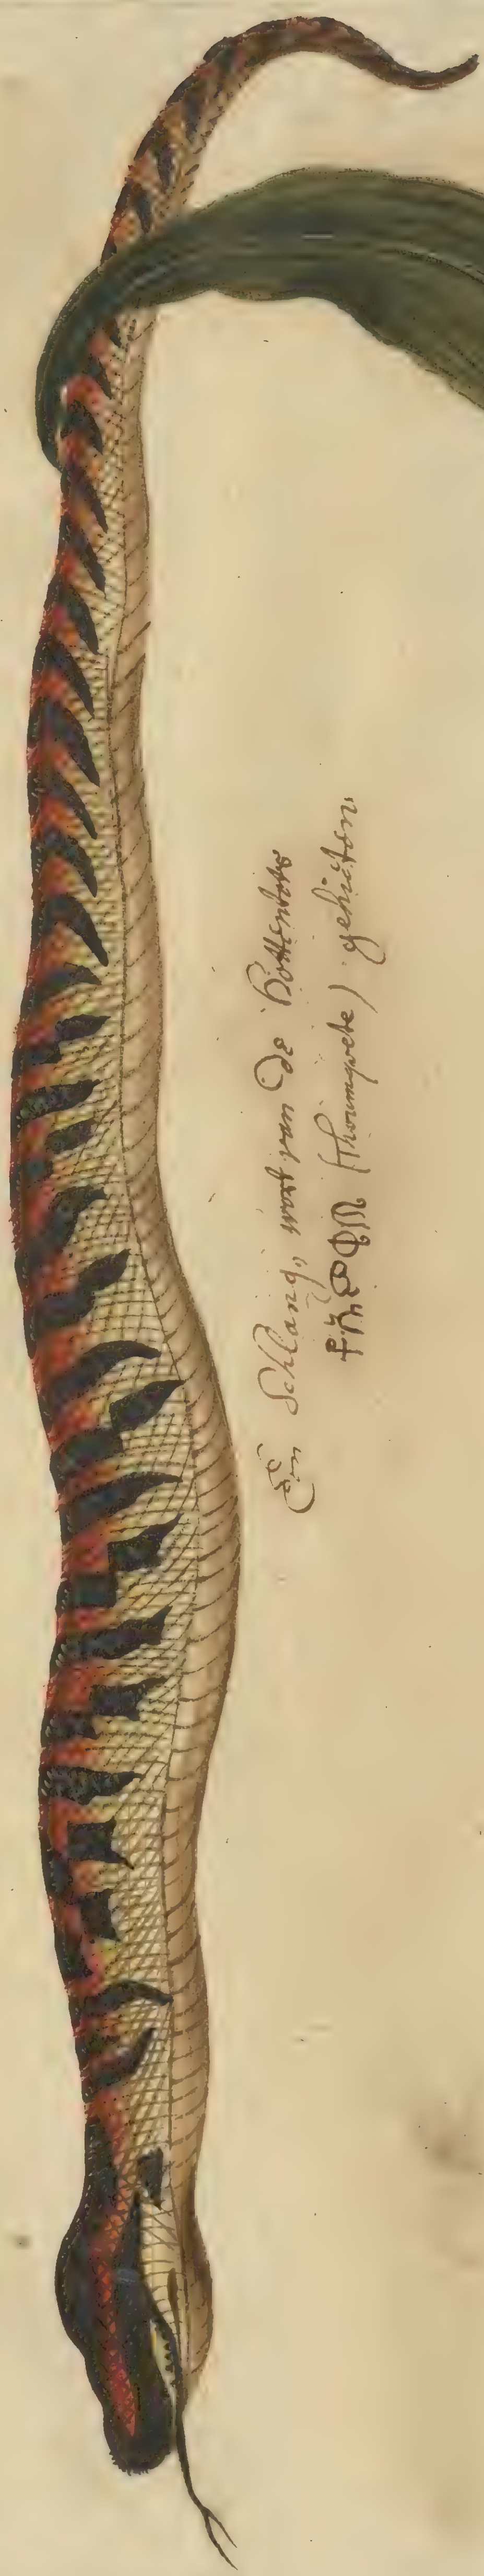 Een Schlang, wort van de Hottentots
(Thoumqvete) gehieten.